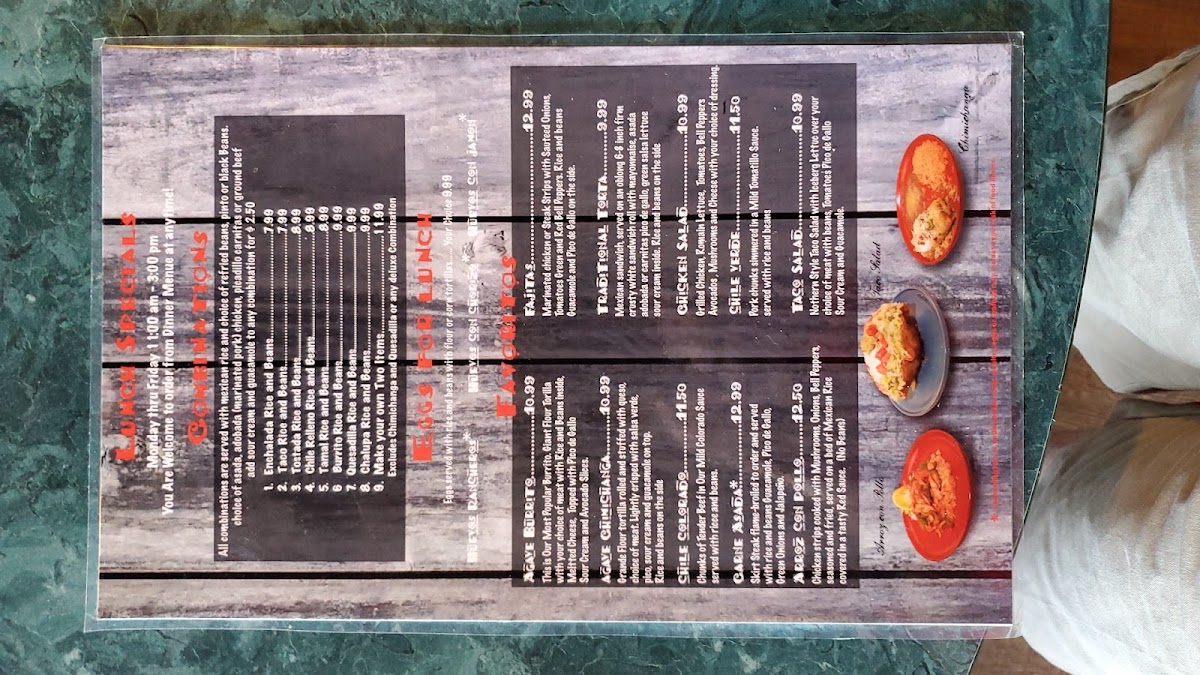 Lunch Specials
Monday thru Friday 11:00 am - 3:00 pm
You Are Welcome to order from Dinner Menue at anytime!
Combinations
All combinations are served with mexican rice and choice of refried beans, pinto or black Beans.
choice of asada, adobada (marinated pork) chicken, picadillo carnitas or ground beef
add sour cream and guacamole to any combination for $ 2.50
1. Enchalada Rice and Beans 7.99
2. Taco Rice and Beans 7.99
3. Tostada Rice and Beans 8.99
4. Chile Relleno Rice and Beans 8.99
5. Tamal Rice and Beans 8.99
6 Burrito Rice and Beans 9.99
7. Quesadilla Rice and Beans 9.99
8. Chalupa Rice and Beans 9.99
9. Make your own Two Items 11.99
Excludes Chimichanga and Quesadilla or any deluxe Combination
Eggs For Lunch
Eggs served with rice and beans with flour or corn tortillas.... Your Choice 9.99
Huevos Rancheros* Huevos Con Chorizo Huevos Con Jamon*
Favoritos
Agave Burrito..........10.99
This is Our Most Popular Burrito. Giant Flour Torilla
with your choice of meat with Rice and Beans Inside,
Meltted Cheese, Topped with Pico de Gallo
Sour Cream and Avocado Slices.
Agave Chimichanga....10.99
Grande Flour tortilla rolled and stuffed with queso,
choice of meat, Lightly crisped with salsa verde,
pico, sour cream and guacamole on top.
Rice and beans on the side
Chile Colorado.........11.50
Chunks of Tender Beef in Our Mild Colorado Sauce
served with rice and beans.
Carne Asada*..........12.99
Skirt Steak flame-broiled to order and served
with rice and beans Guacamole, Pico de Gallo,
Green Onions and Jalapeño.
Arroz con Pollo........12.50
Chicken strips cooked with Mushrooms, Onions, Bell Peppers,
seasoned and fried, served on a bed of Mexican Rice
covered in a tasty Red Sauce. (No Beans)
Fajitas..................12.99
Marinated chicken or Steak Strips with Sauteed Onions,
Tomatoes Green and Red Bell Peppers. Rice and beans
Guacamole and Pico de Gallo on the side.
Traditional Torta......9.99
Mexican sandwich, served on an oblong 6-8 inch firm
crusty white sandwich roll with mayonnaise, asada
adobada or carnitas pico de gallo, green salsa lettuce
sour cream inside. Rice and beans on the side
Chicken Salad..........10.99
Grilled Chicken, Romain Lettuce, Tomatoes, Bell Peppers
Avocados, Mushrooms and Cheese with your choice of dressing.
Chile Verde.............11.50
Pork chunks simmered in a Mild Tomatillo Sauce.
served with rice and beans
Taco Salad..............10.99
Northern Style Taco Salad with Iceberg Lettue over your
choice of meat with beans, Tomatoes Pico de Gallo
Sour Cream and Guacamole.
Arroz con Pollo
Taco Salad
Chimichanga